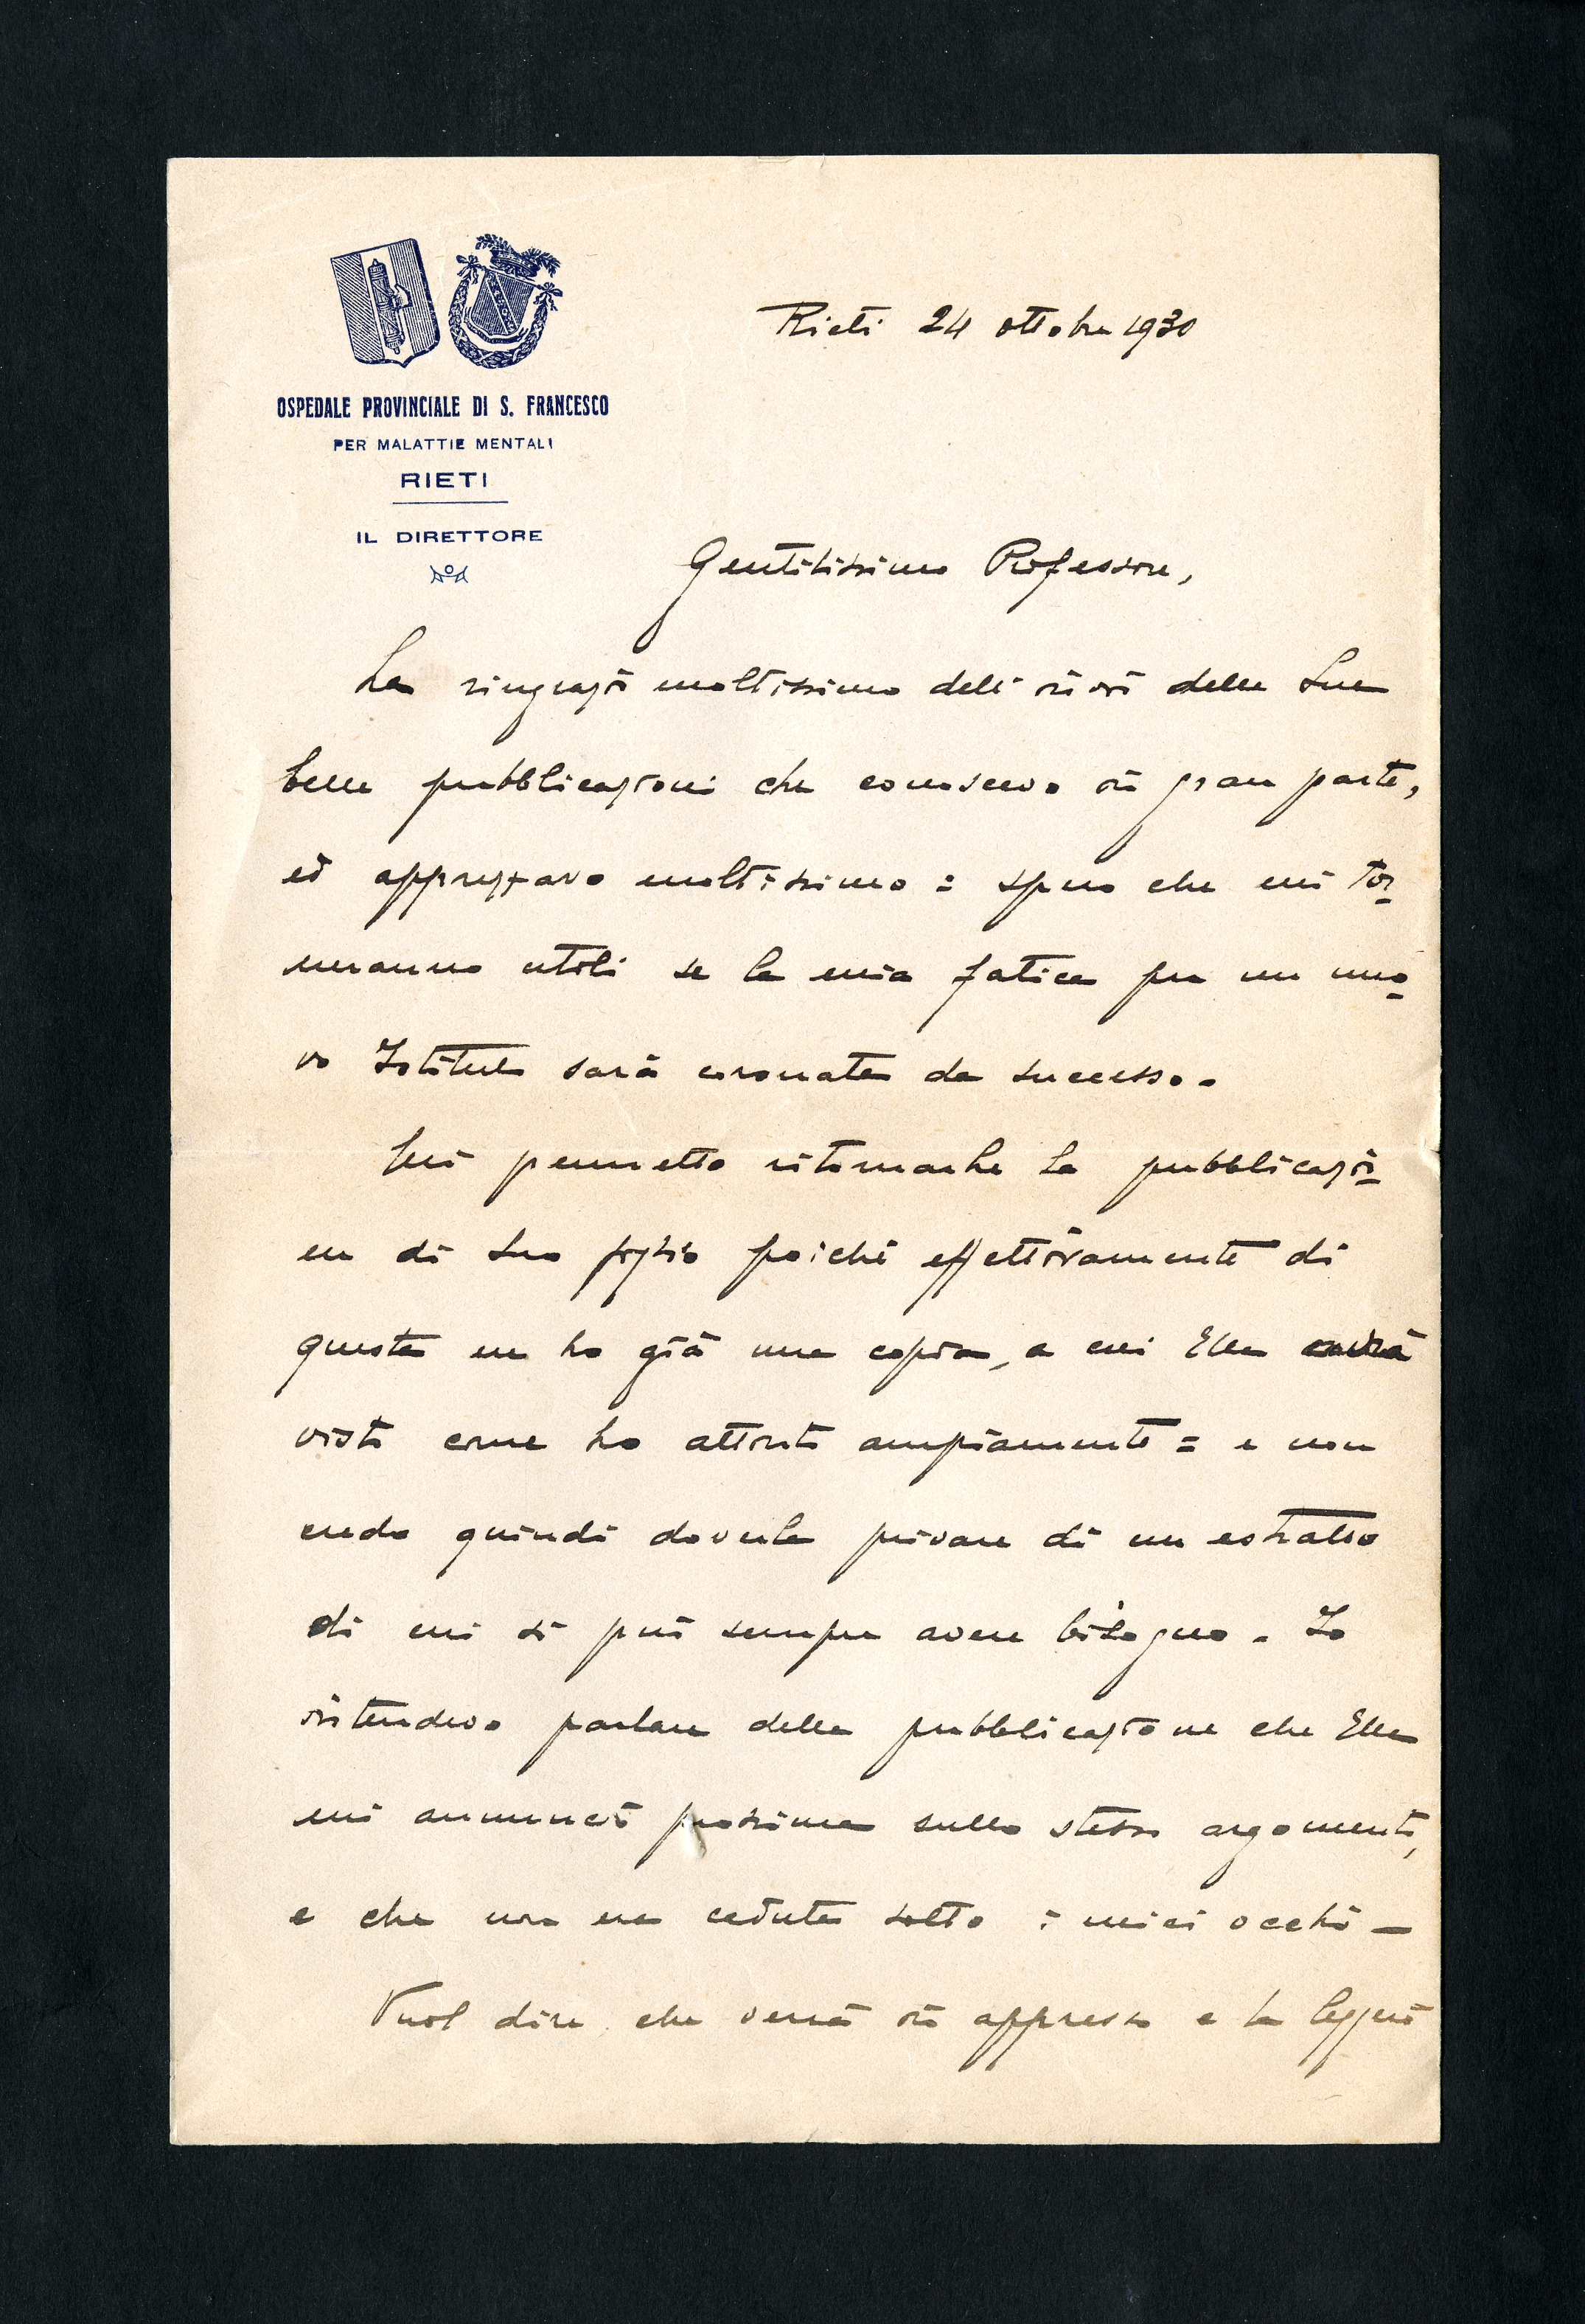 Rieti 24 ottobre 1930
OSPEDALE PROVINCIALE DI S. FRANCESCO
PER MALATTIE MENTALI
RIETI
IL DIRETTORE
Gentilissimo Professore,
La ringrazio moltissimo dell' invio delle Sue
belle pubblicazioni che conoscevo in gran parte,
ed apprezzavo moltissimo: spero che mi tor-
neranno utili se la mia fatica per un nuo-
vo Istituto sarà coronata da successo.
Mi permetto ritornarLe la pubblicazio-
ne di Suo pugno poichè effettivamente di
questa ne ho già una copia, a cui Ella avrà
visto come ho attinto ampiamente = e non
credo quindi doverLa privare di un estratto
di cui si può sempre avere bisogno. Io
intendevo parlare della pubblicazione che Ella
mi annunciò prossima sullo stesso argomento,
e che non era caduta sotto i miei occhi -
Vuol dire che verrà in appresso e la leggerò